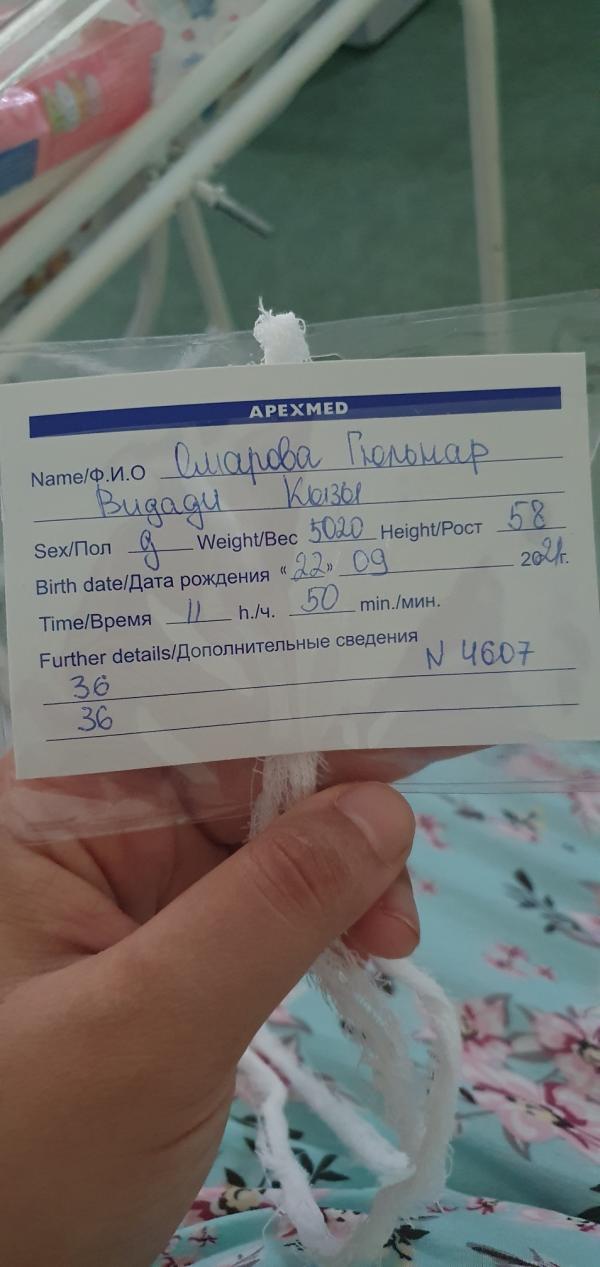 APEXMED
Name/Ф.И.О Омарова Гюльнар
Видади Кызы
Sex/Пол д Weight/Вес 5020 Height/Рост 58
Birth date/Дата рождения «22» 09 2021г.
Time/Время 11 h./ч. 50 min./мин.
Further details/Дополнительные сведения
N 4607
36
36